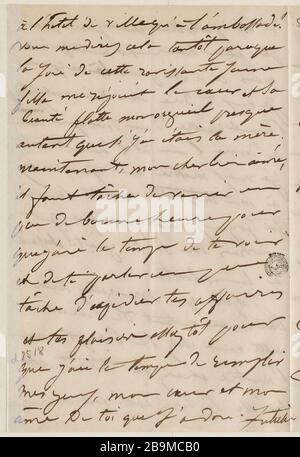 à l'hotel de ville qu'à l'ambassade!
vous me direz cela tantôt parceque
la joie de cette ravissante jeune
fille me rejouit le cœur et sa
beauté flatte mon orgueil presque
autant que si j'étais la mère.
maintenant, mon cher bien aimé,
il faut tâche de venir un
peu de bonne heure pour
que j'aie le temps de te voir
et de te parler un peu
tâche d'expédier tes affaires
et tes plaisirs assez tôt pour
que j'aie le temps de remplir
mes yeux, mon cœur et mon
âme de toi que j'adore. Juliette
alamy
Image ID: 2B9MCB0
www.alamy.com